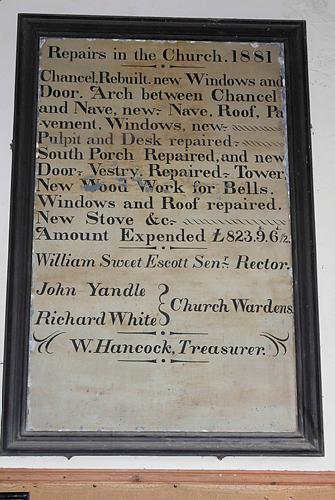 Repairs in the Church. 1881
Chancel, Rebuilt. new Windows and
Door. Arch between Chancel
and Nave, new- Nave, Roof, Pa
vement, Windows, new-
Pulpit and Desk repaired-
South Porch Repaired, and new
Door- Vestry. Repaired- Tower,
New Wood Work for Bells.
Windows and Roof repaired.
New Stove &c-
Amount Expended £823.9.6½.
William Sweet Escott Senr. Rector.
John Yandle
Richard White } Church Wardens.
W. Hancock, Treasurer.